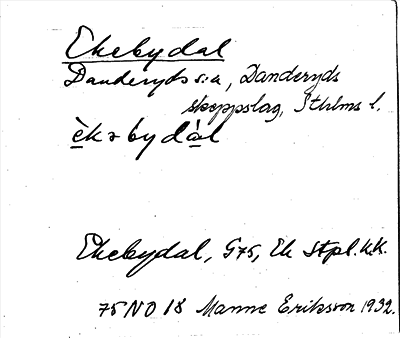 Ekebydal
Danderyds sn, Danderyds
skeppslag, Sthlms l.
èkəbydàl
Ekebydal, G75, Ek Stpl. k.k.
75 NO 18 Manne Eriksson 1932.